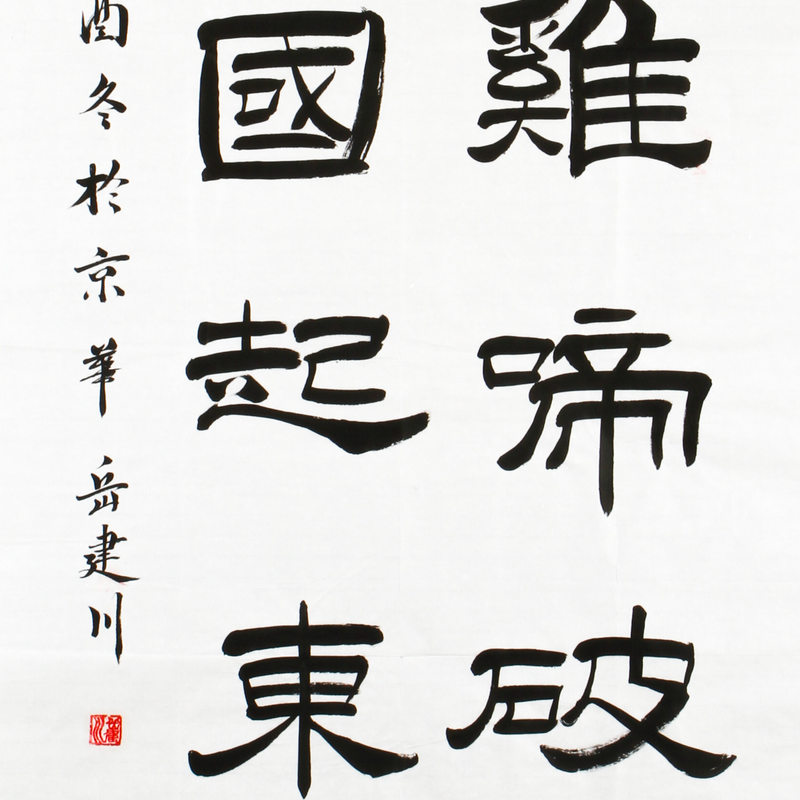 雞啼破
國起東
酉冬於京華岳建川